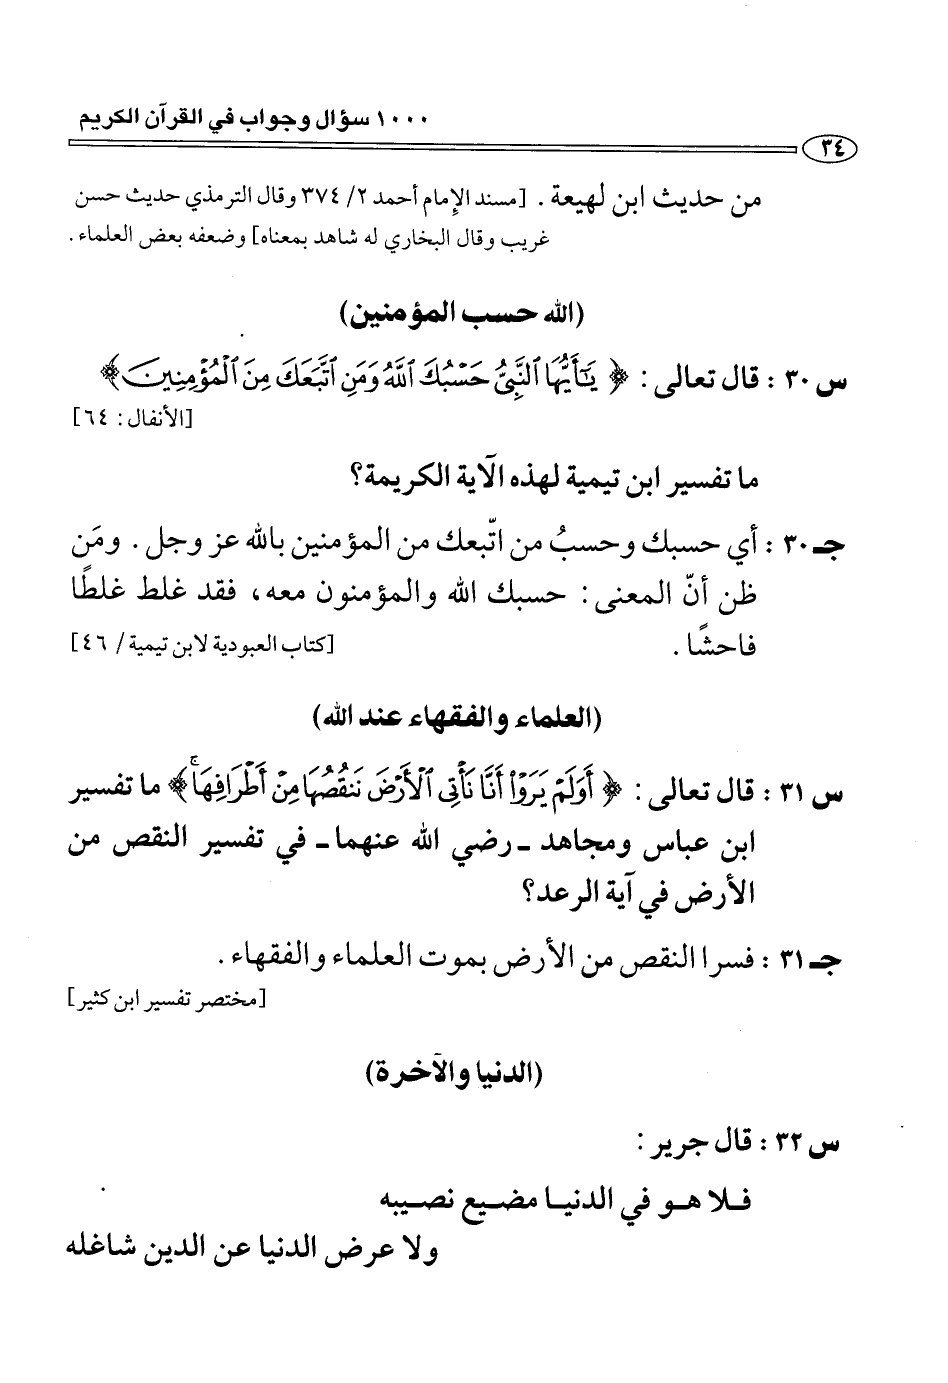 ١٠٠٠ سؤال وجواب في القرآن الكريم
٣٤
من حديث ابن لهيعة . [مسند الإمام أحمد ٢/ ٣٧٤ وقال الترمذي حديث حسن
غريب وقال البخاري له شاهد بمعناه] وضعفه بعض العلماء .
(الله حسب المؤمنين)
س ٣٠ : قال تعالى : ﴿ يَٰٓأَيُّهَا ٱلنَّبِيُّ حَسۡبُكَ ٱللَّهُ وَمَنِ ٱتَّبَعَكَ مِنَ ٱلۡمُؤۡمِنِينَ ﴾
[الأنفال : ٦٤]
ما تفسير ابن تيمية لهذه الآية الكريمة؟
جـ ٣٠ : أي حسبك وحسبُ من اتّبعك من المؤمنين بالله عز وجل . ومَن
ظن أنّ المعنى : حسبك الله والمؤمنون معه، فقد غلط غلطًا
فاحشًا . [كتاب العبودية لابن تيمية / ٤٦]
(العلماء والفقهاء عند الله)
س ٣١ : قال تعالى : ﴿ أَوَلَمۡ يَرَوۡاْ أَنَّا نَأۡتِي ٱلۡأَرۡضَ نَنقُصُهَا مِنۡ أَطۡرَافِهَاۚ ﴾ ما تفسير
ابن عباس ومجاهد ـ رضي الله عنهما ـ في تفسير النقص من
الأرض في آية الرعد؟
جـ ٣١ : فسرا النقص من الأرض بموت العلماء والفقهاء .
[مختصر تفسير ابن كثير]
(الدنيا والآخرة)
س ٣٢ : قال جرير :
فـلا هـو في الدنيـا مضيـع نصيـبه
ولا عرض الدنيا عن الدين شاغله